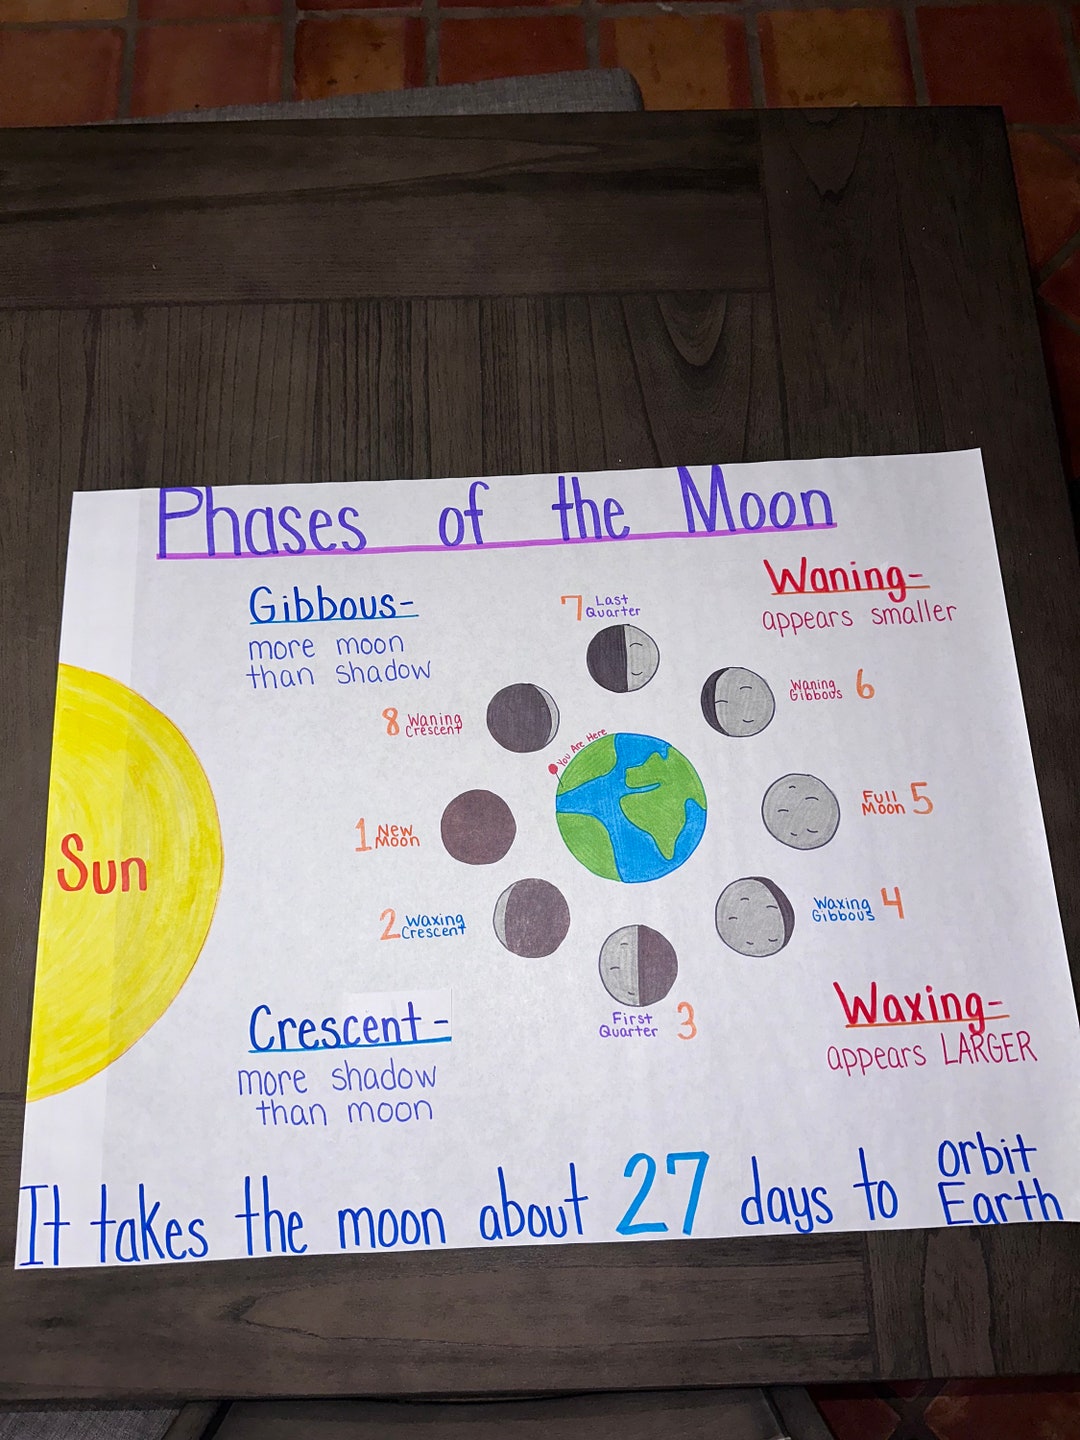 Phases of the Moon
Gibbous-
more moon
than shadow
Waning-
appears smaller
7 Last
Quarter
Waning
Gibbous 6
8 Waning
Crescent
You Are Here
Full
Moon 5
1 New
Moon
Sun
2 Waxing
Crescent
Waxing
Gibbous 4
First
Quarter 3
Crescent-
more shadow
than moon
Waxing-
appears LARGER
It takes the moon about 27 days to orbit
Earth